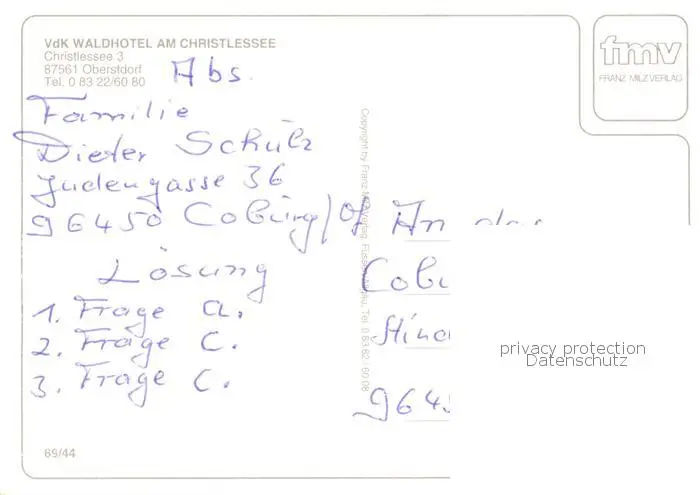 VdK WALDHOTEL AM CHRISTLESSEE
Christlessee 3
87561 Oberstdorf
Tel. 0 83 22/60 80
Abs.
Familie
Dieter Schulz
Judengasse 36
96450 Coburg/Of
Lösung
1. Frage a.
2. Frage c.
3. Frage c.
69/44
fmv
FRANZ MILZ VERLAG
Copyright by Franz Milz Verlag,
Tel. 0 83 62 / 60 08
An
Cobu
privacy protection
Datenschutz